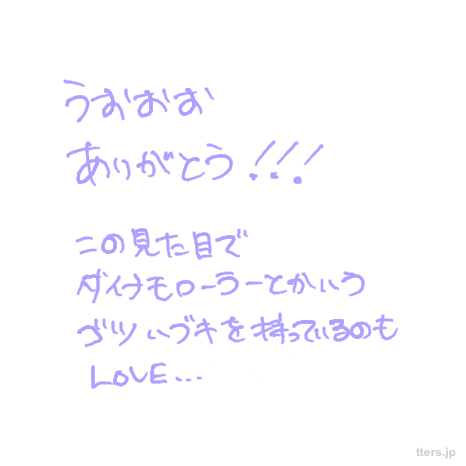 うおおお
ありがとう!!!
この見た目で
ダイナモローラーとかいう
ゴツいブキを持っているのも
LOVE...
tters.jp